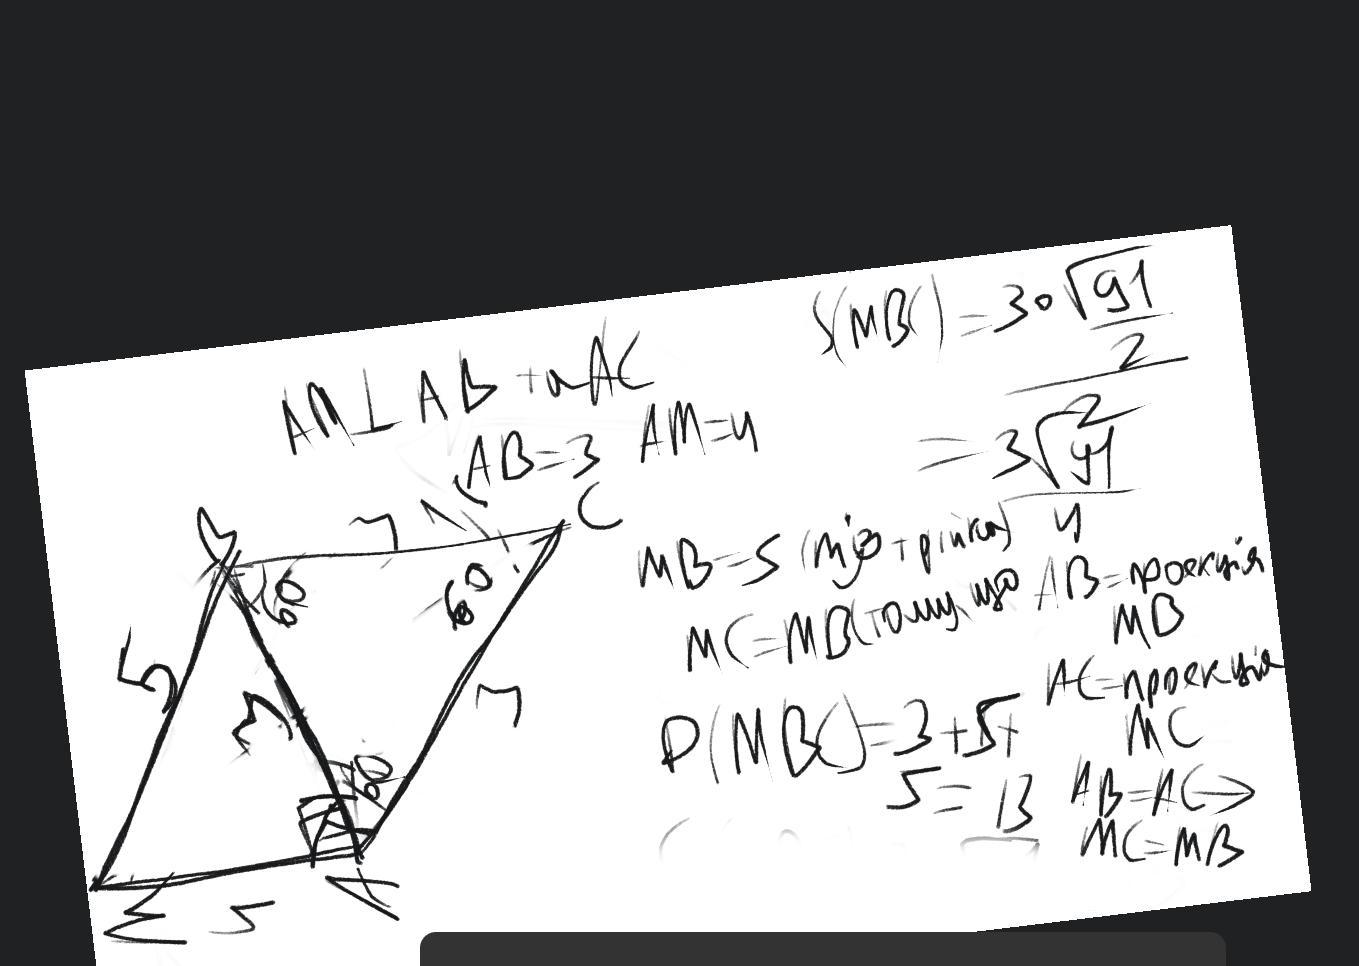 S(MBC) = 3 · √91/2
2
= 3√91
4
AM ⊥ AB та AC
AB = 3 AM = 4
C
7
60
60
5
3
7
60
M 5 A
MB = 5 (
MC = MB (тому, що AB = проекція
MB
AC = проекція
MC
P(MBC) = 3 + 5 +
5 = 13
AB = AC →
MC = MB